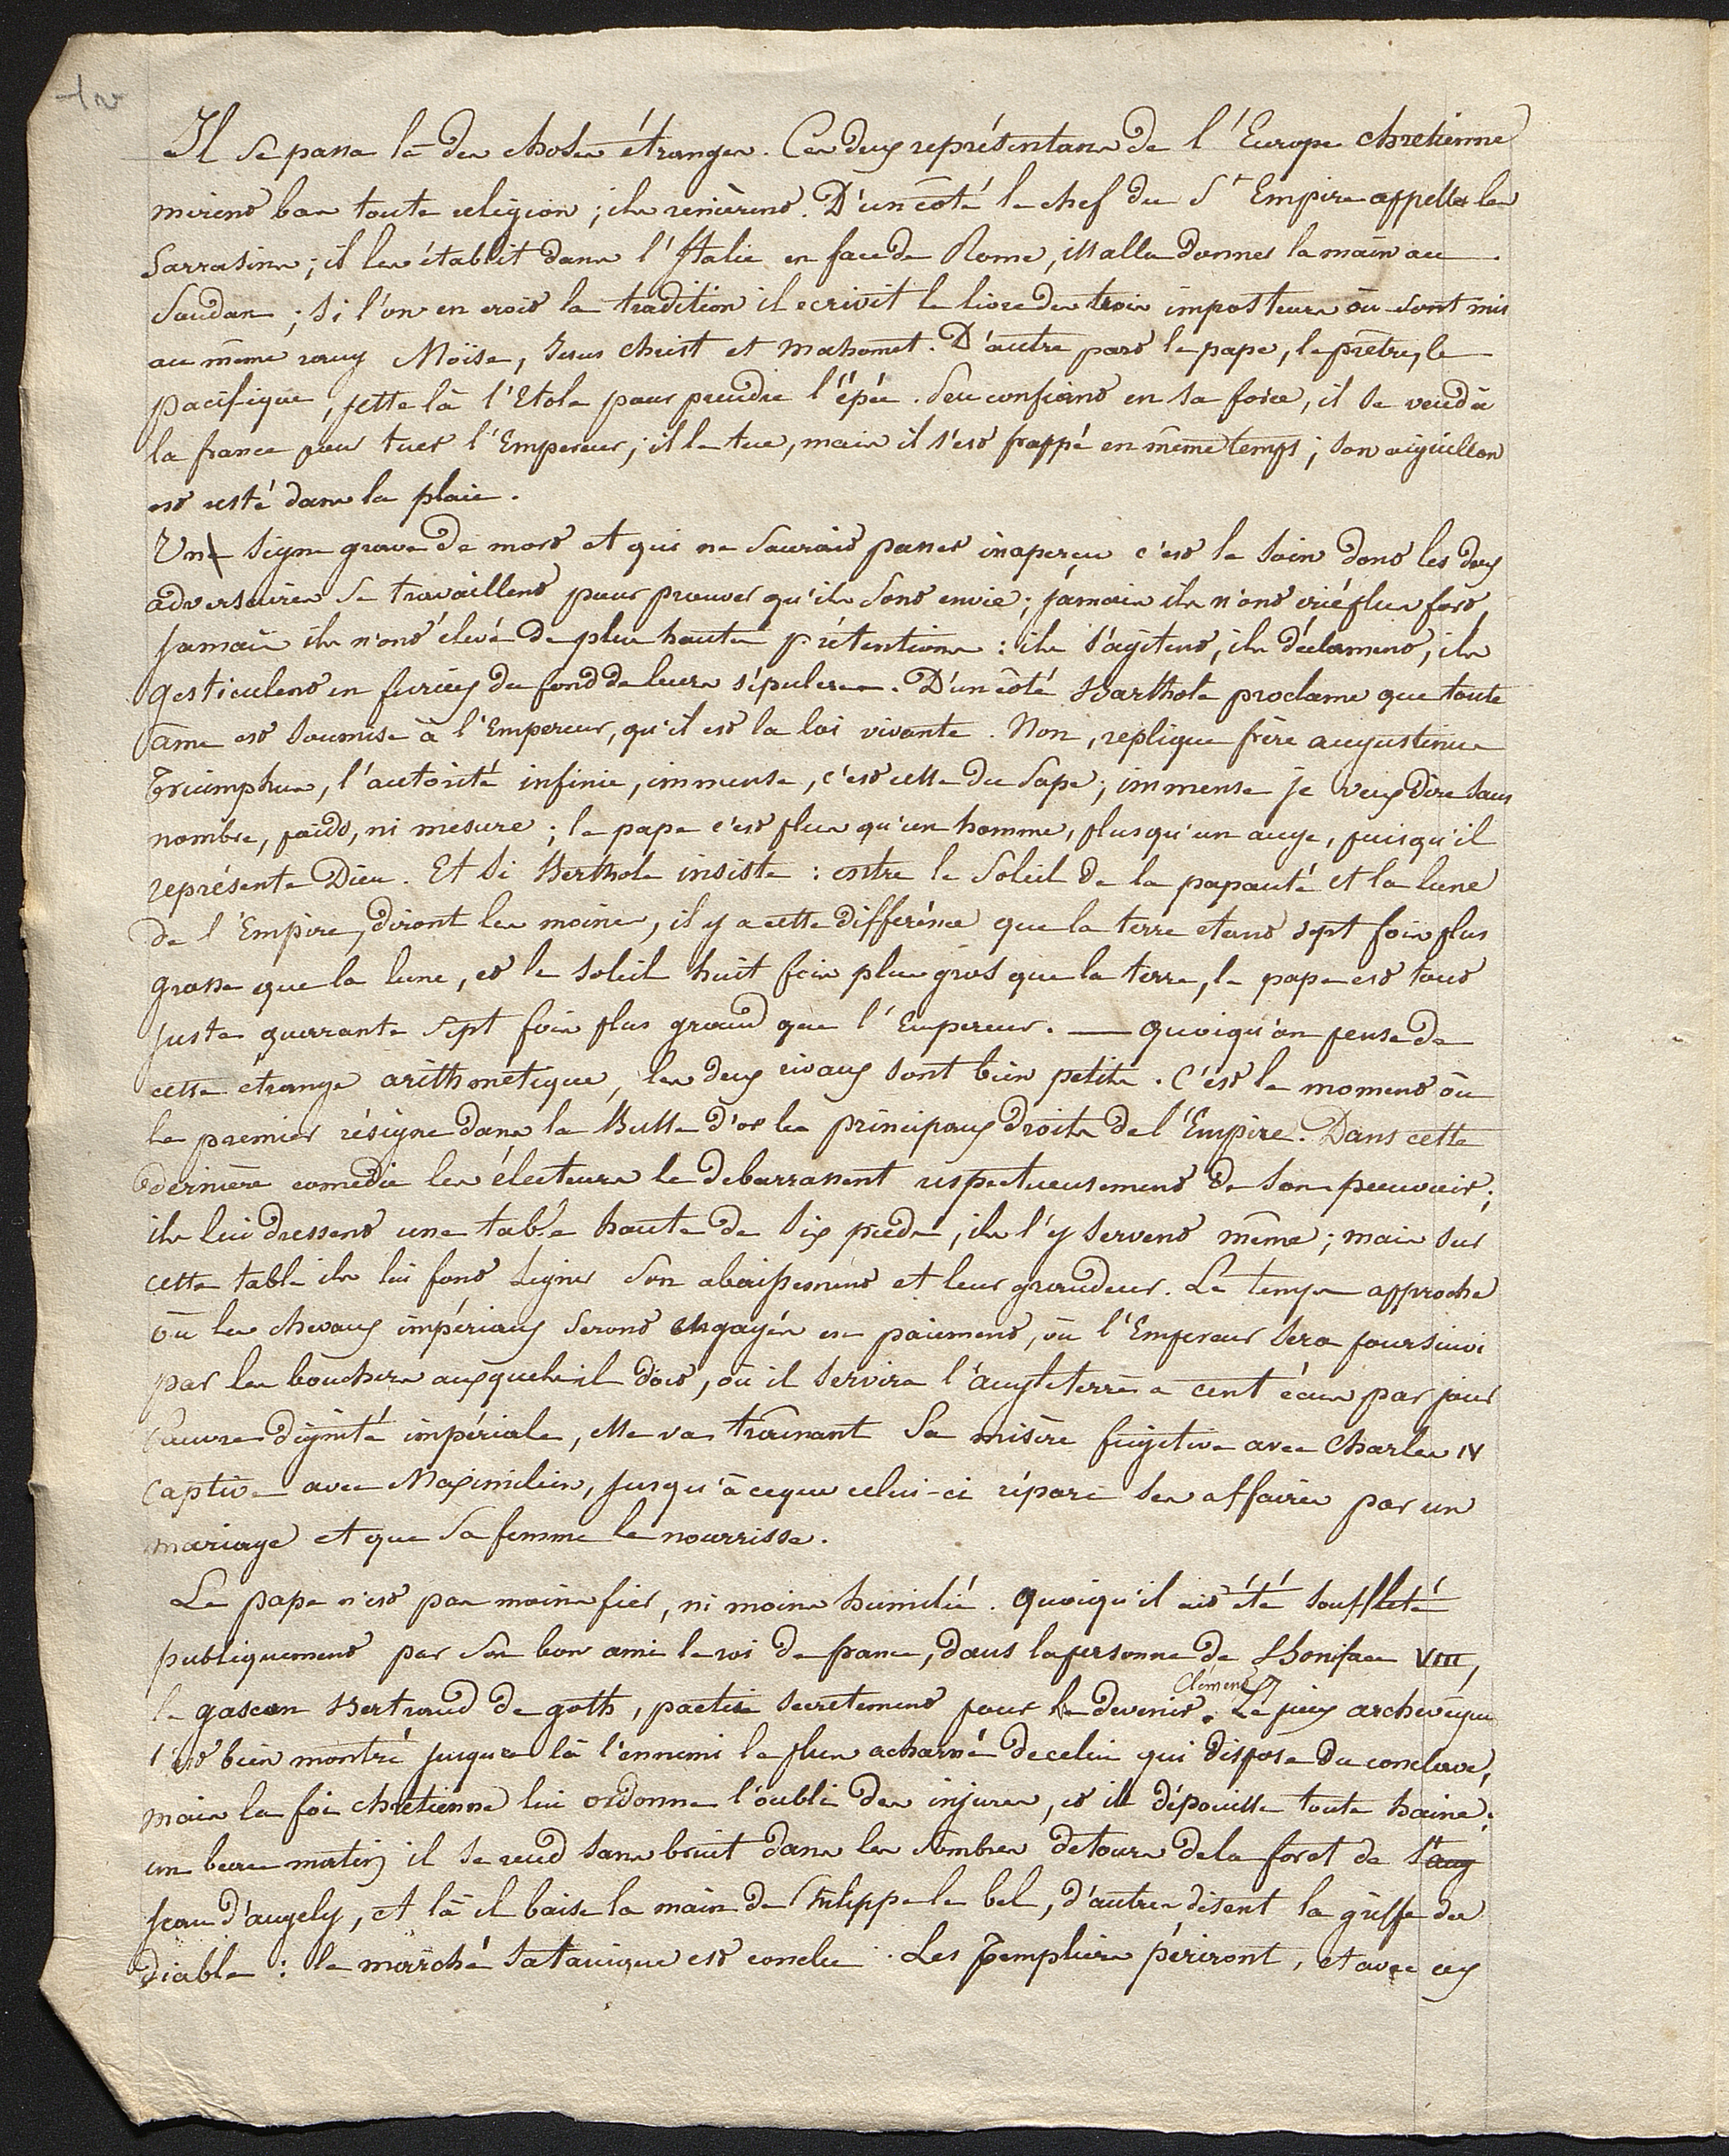 Il se passa là des choses étranges. Ces deux représentans de l'Europe chretienne
mirent bas toute religion ; ils renièrent. D'un coté le chef du St Empire appella les
Sarrasins ; il les établit dans l'Italie en face de Rome, il alla donner la main au
Soudan ; si l'on en croit la tradition il ecrivit le livre des trois imposteurs où sont mis
au même rang Moïse, Jesus Christ et Mahomet. D'autre part le pape, le prêtre, le
pacifique, jette là l'Etole pour prendre l'épée. Peu confiant en sa force, il se vend à
la france pour tuer l'Empereur ; il le tue, mais il s'est frappé en même temps ; son aiguillon
est resté dans la plaie.
Un signe grave de mort et qui ne saurait passer inaperçu c'est le soin dont les deux
adversaires se travaillent pour prouver qu'ils sont envie ; jamais ils n'ont crié plus fort
jamais ils n'ont élevé de plus hautes prétentions : ils s'agitent, ils déclament, ils
gesticulent en furieux du fond de leurs sépulcres. D'un côté Barthole proclame que toute
âme est soumise à l'Empereur, qu'il est la loi vivante. Non, replique frère augustinus
Triumphus, l'autorité infinie, immense, c'est celle du Pape ; immense je veux dire sans
nombre, poids, ni mesure ; le pape c'est plus qu'un homme, plus qu'un ange, puisqu'il
représente Dieu. Et si Berthole insiste : entre le Soleil de la papauté et la lune
de l'Empire, diront les moines, il y a cette différence que la terre etant sept fois plus
grosse que la lune, et le soleil huit fois plus gros que la terre, le pape est tout
juste quarrante sept fois plus grand que l'Empereur. — quoiqu'on pense de
cette etrange arithmetique, les deux rivaux sont bien petits. C'est le moment où
le premier résigne dans la Bulle d'or les principaux droits de l'Empire. Dans cette
dernière comedie les électeurs le debarrassent respectueusement de son pouvoir ;
ils lui dressent une table haute de six pieds, ils l'y servent même ; mais sur
cette table ils lui font signer son abaissement et leur grandeur. Le temps approche
où les chevaux impériaux seront engagés en paiement, où l'Empereur sera poursuivi
par les bouchers auxquels il doit, où il servira l'angleterre a cent écus par jour
Pauvre dignité impériale, elle va trainant sa misère fugitive avec Charles IV
captive avec Maximilien, jusqu'à ceque celui-ci répare ses affaires par un
mariage et que sa femme le nourrisse.
Le pape n'est pas moins fier, ni moins humilié. quoiqu'il ait été souffleté
publiquement par son bon ami le roi de france, dans la personne de Boniface VIII,
Clément V
le gascon Bertrand de goth, pactise secretement pour le devenir. Le juge archevêque
s'est bien montré jusques là l'ennemi le plus acharné de celui qui dispose du conclave,
mais la foi chrétienne lui ordonne l'oubli des injures, et il dépouille toute haine ;
un beau matin il se rend sans bruit dans les sombres detours dela foret de St ang
Jean d'angely, et là il baise la main de Philippe le bel, d'autres disent la griffe du
diable : le marché satanique est conclu. Les Templiers périront, et avec eux